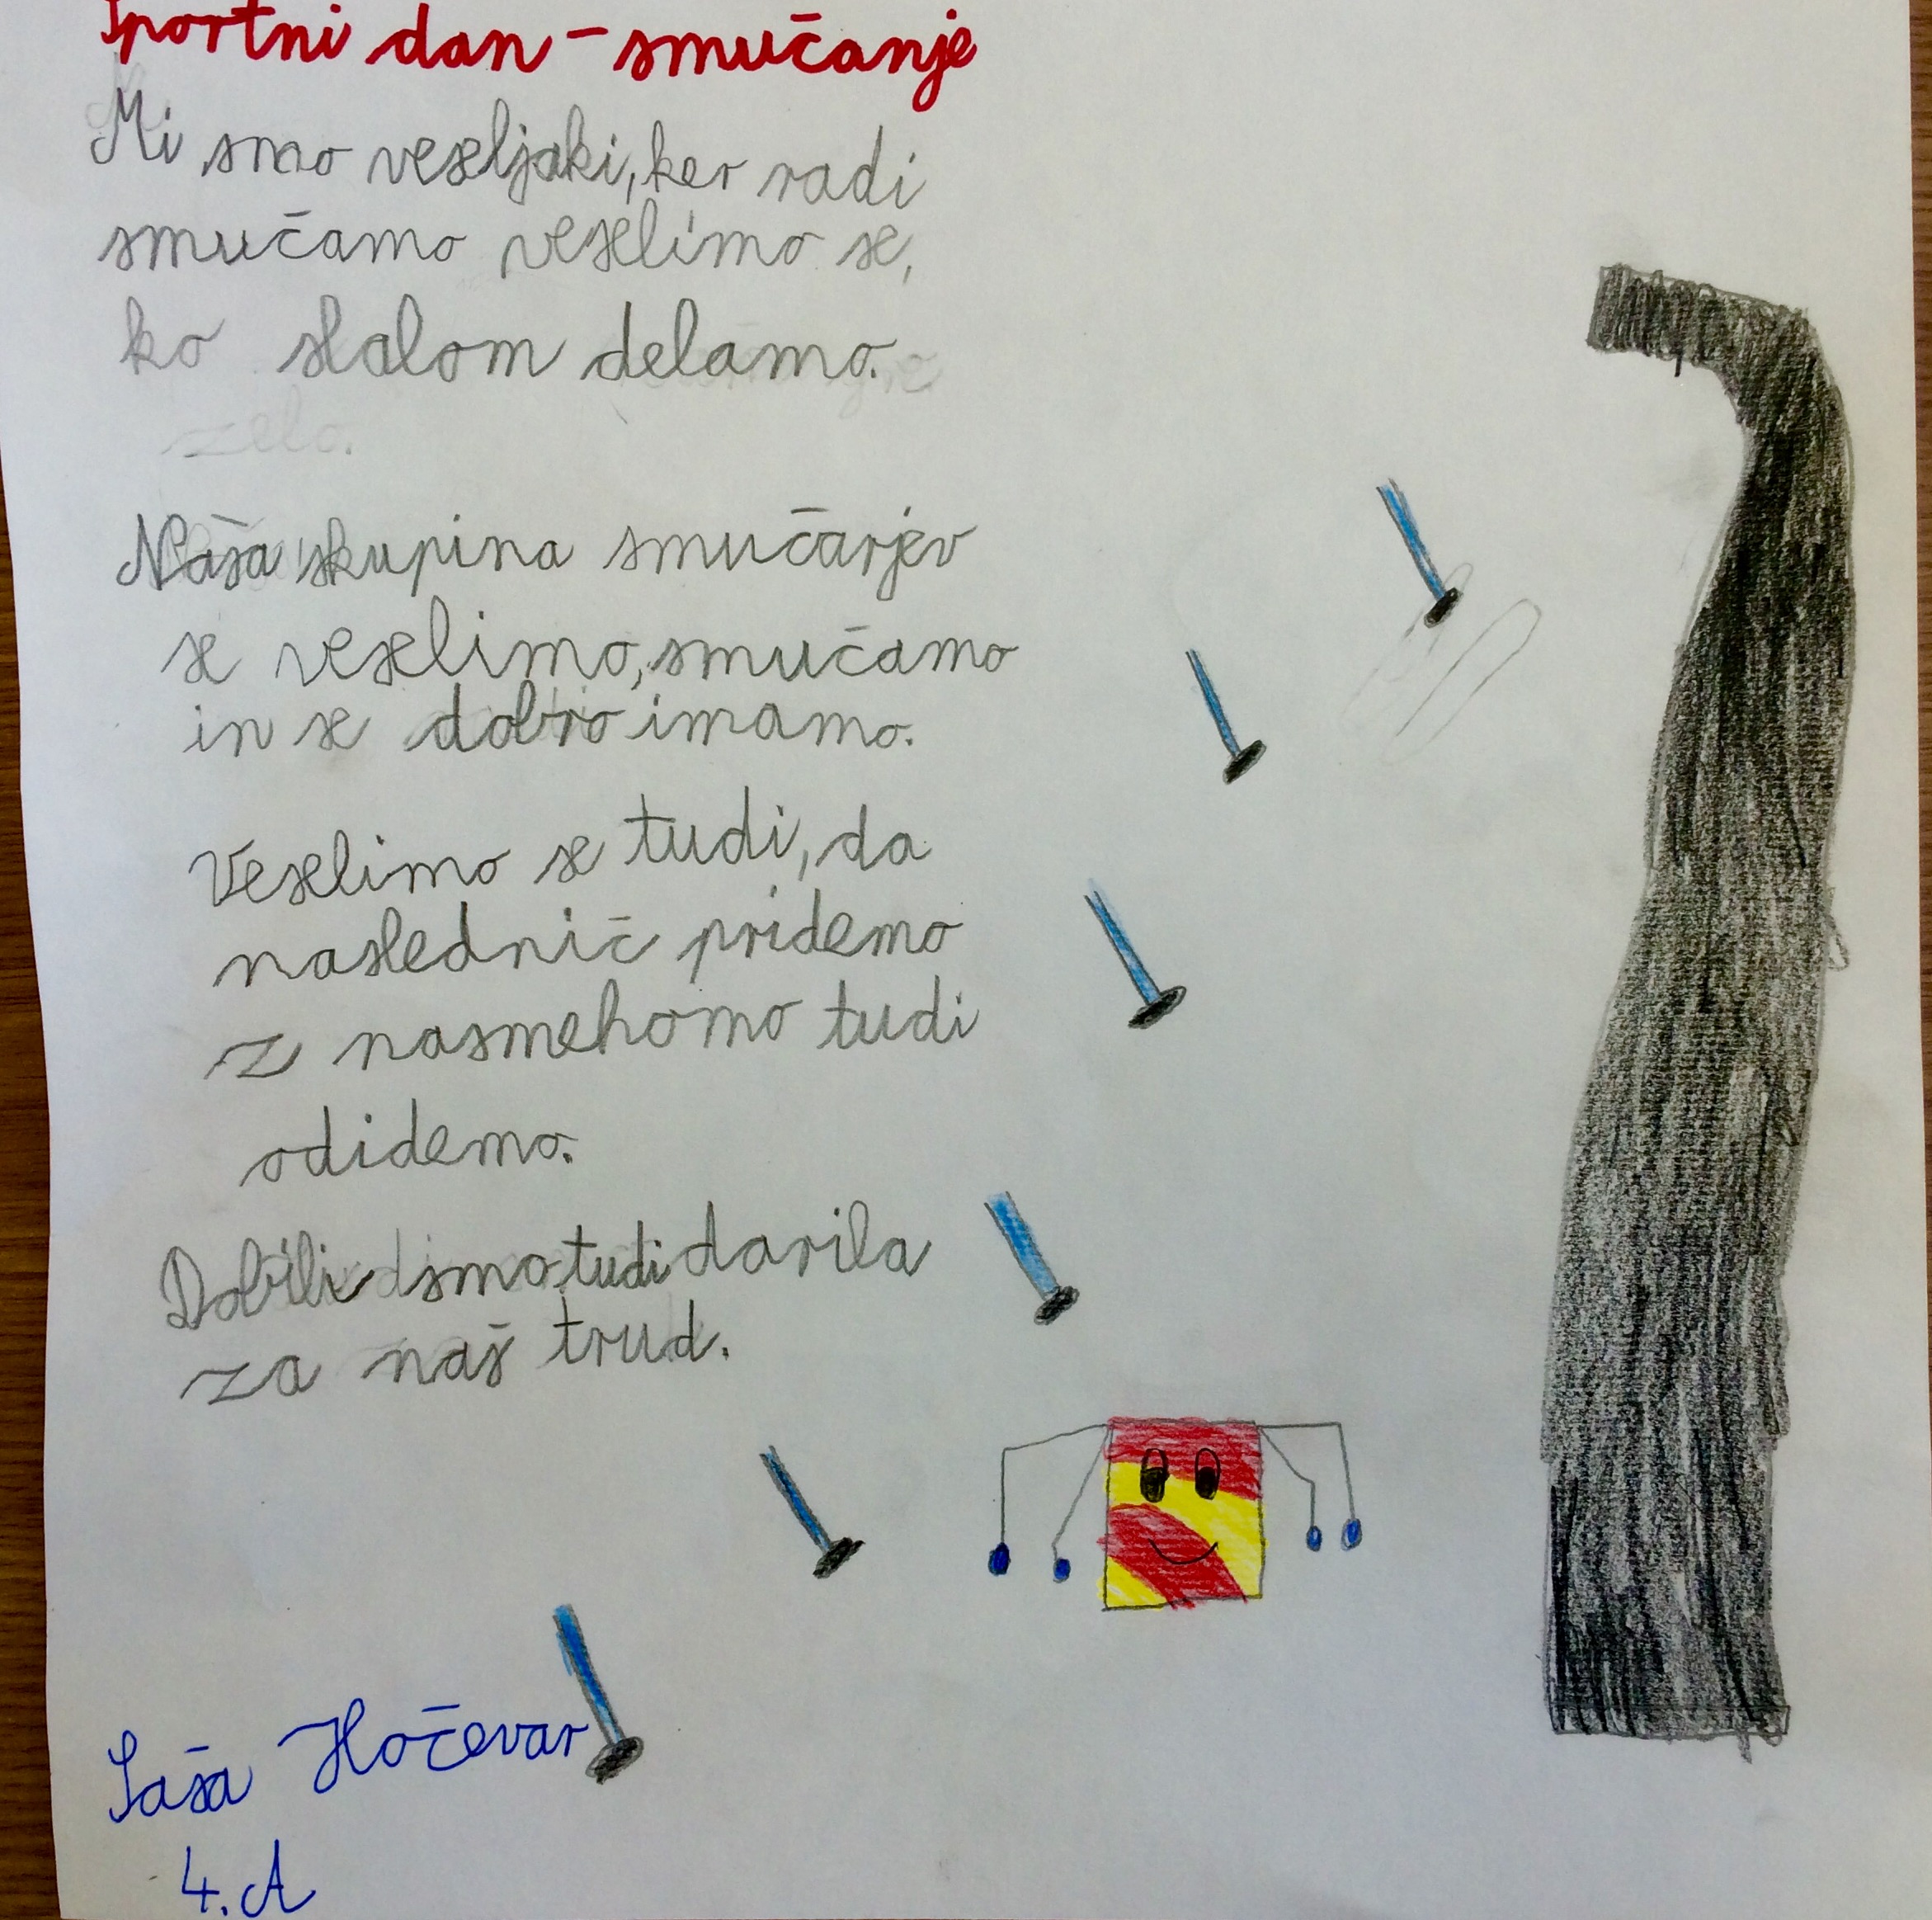 Športni dan - smučanje
Mi smo veseljaki, ker radi
smučamo veselimo se,
ko slalom delamo.
zelo.
Naša skupina smučarjev
se veselimo, smučamo
in se dobro imamo.
Veselimo se tudi, da
naslednič pridemo
z nasmehomo tudi
odidemo.
Dobili smo tudi darila
za naš trud.
Saša Hočevar
4. A